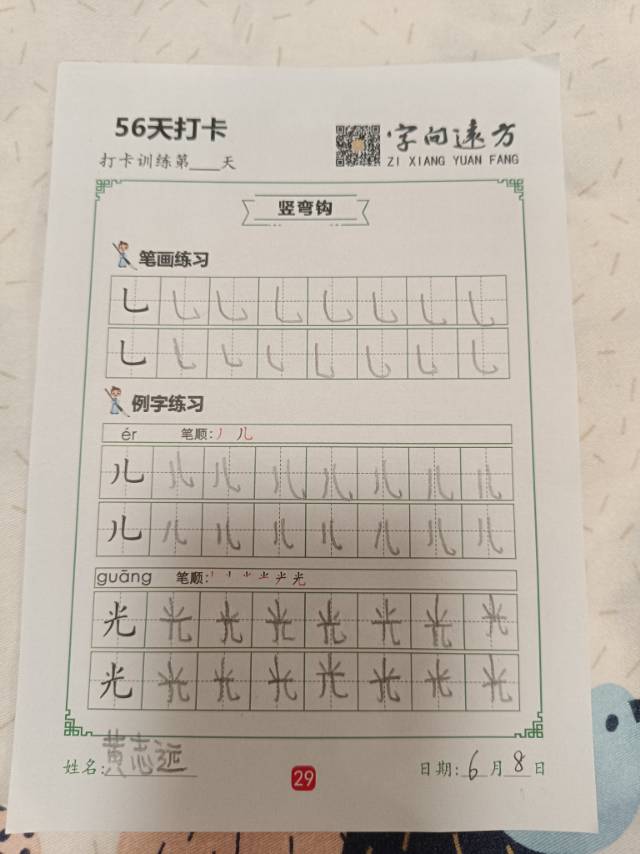 56天打卡
打卡训练第___天
字向远方
ZI XIANG YUAN FANG
竖弯钩
笔画练习
乚 乚 乚 乚 乚 乚 乚 乚
乚 乚 乚 乚 乚 乚 乚 乚
例字练习
ér 笔顺:丿 儿
儿 儿 儿 儿 儿 儿 儿 儿
儿 儿 儿 儿 儿 儿 儿 儿
guāng 笔顺:
光 光 光 光 光 光 光 光
光 光 光 光 光 光 光 光
姓名:黄志远
29
日期:6月8日